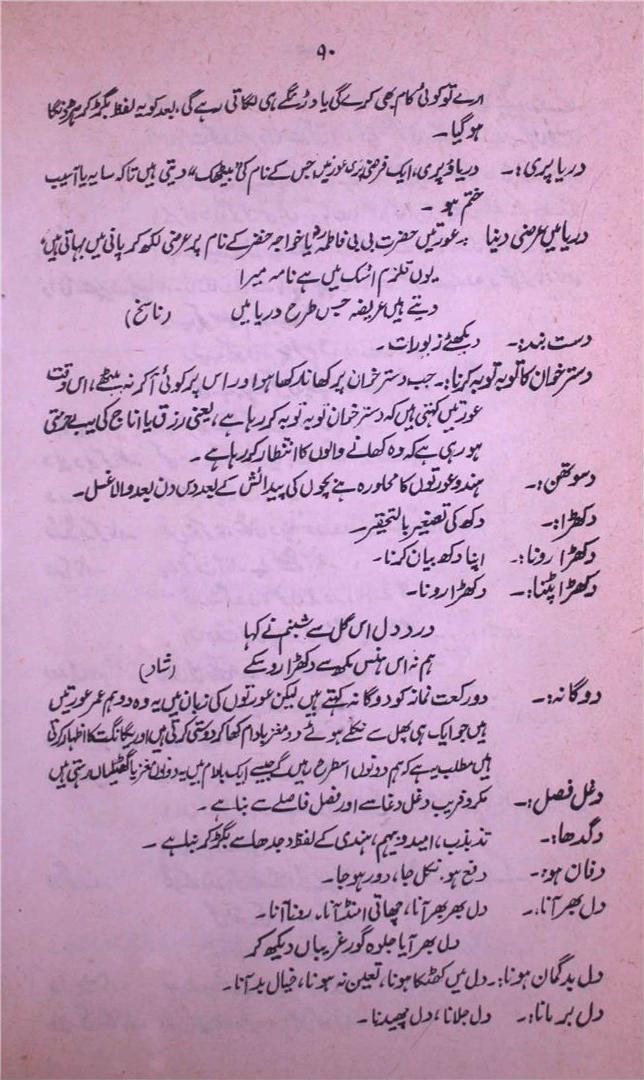 ۹۰
ارے تو کوئی کام بھی کرے گی یا دڑنگے ہی لگاتی رہے گی، بعد کو یہ لفظ بگڑ کر
ہو گیا۔
دریا پری:۔ دریاؤ پری، ایک فرضی پری عورتیں جس کے نام کی "بیٹھک" دیتی ہیں تاکہ سایہ یا آسیب
ختم ہو۔
دریا میں عرضی دینا:۔ عورتیں حضرت بی بی فاطمہؓ یا خواجہ خضر کے نام پر عرضی لکھ کر پانی میں بہاتی ہیں،
یوں قلزم اشک میں ہے نامہ میرا
دیتے ہیں عریضہ جس طرح دریا میں (ناسخ)
دست بند:۔ دیکھئے زیورات۔
دسترخوان کا توبہ توبہ کرنا:۔ جب دسترخوان پر کھانا رکھا ہو اور اس پر کوئی آ کر نہ بیٹھے، اس وقت
عورتیں کہتی ہیں کہ دسترخوان توبہ توبہ کر رہا ہے، یعنی رزق یا اناج کی بے حرمتی
ہو رہی ہے کہ وہ کھانے والوں کا انتظار کر رہا ہے۔
دسوٹھن:۔ ہندو عورتوں کا محاورہ ہے بچوں کی پیدائش کے بعد دس دن بعد والا غسل۔
دکھڑا:۔ دکھ کی تصغیر بالتحقیر۔
دکھڑا رونا:۔ اپنا دکھ بیان کرنا۔
دکھڑا پیٹنا:۔ دکھڑا رونا۔
درد دل اس گل سے شبنم نے کہا
ہم نہ اس ہنس مکھ سے دکھڑا رو سکے (شاد)
دوگانہ:۔ دو رکعت نماز کو دوگانہ کہتے ہیں لیکن عورتوں کی زبان میں یہ وہ دو ہم عمر عورتیں
ہیں جو ایک ہی پھل سے نکلے ہوئے دو مغز بادام کھا کر دوستی کرتی ہیں اور یگانگت کا اظہار کرتی
ہیں مطلب یہ ہے کہ ہم دونوں اسطرح رہیں گے جیسے ایک بادام میں یہ دونوں مغز یا گٹھلیاں رہتی ہیں
دغل فصل:۔ مکر و فریب دغل دغا سے اور فصل فاصلے سے بنا ہے۔
دگدھا:۔ تذبذب، امید و بیم، ہندی کے لفظ دجدھا سے بگڑ کر بنا ہے۔
دفان ہو:۔ دفع ہو۔ نکل جا، دور ہو جا۔
دل بھر آنا:۔ دل بھر بھر آنا، چھاتی امنڈ آنا۔ رونا آنا۔
دل بھر آیا جلوہ گور غریباں دیکھ کر
دل بدگمان ہونا:۔ دل میں کھٹکا ہونا، تعین نہ ہونا، خیال بد آنا۔
دل برمانا:۔ دل جلانا، دل چھیدنا۔